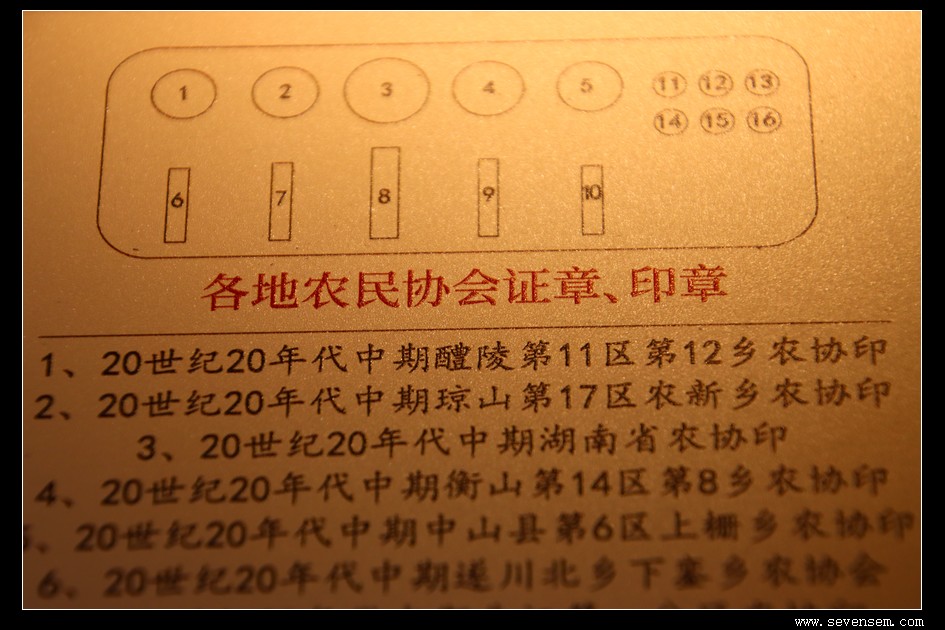 1 2 3 4 5 11 12 13
14 15 16
6 7 8 9 10
各地农民协会证章、印章
1、20世纪20年代中期醴陵第11区第12乡农协印
2、20世纪20年代中期琼山第17区农新乡农协印
3、20世纪20年代中期湖南省农协印
4、20世纪20年代中期衡山第14区第8乡农协印
5、20世纪20年代中期中山县第6区上栅乡农协印
6、20世纪20年代中期遂川北乡下寨乡农协会
www.sevensem.com